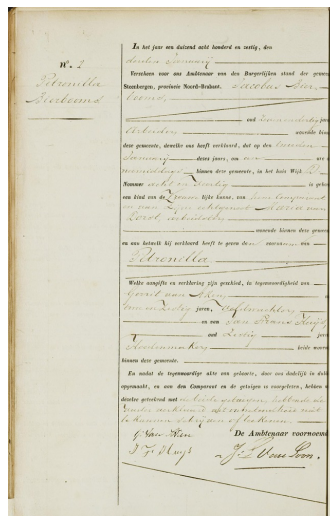 N°. 2
Petronella
Bierboomd
In het jaar een duizend acht honderd en zestig, den
derden Januarij
Verscheen voor ons Ambtenaar van den Burgerlijken stand der gemeente
Steenbergen, provincie Noord-Brabant. Jacobus Bier-
boomd,
oud jaren
Arbeider wonende bin
deze gemeente, dewelke ons heeft verklaard, dat op den tweeden
Januarij dezes jaars, om een ure
namiddags binnen deze gemeente, in het huis Wijk D
Nommer acht en twintig is gebo
een kind van de Vrouwelijke kunne, van hem Comparant
en van zijne echtgenoot Maria van
Dorst, arbeidster
wonende binnen deze gemeen
en aan hetwelk hij verklaard heeft te geven den voornaam van
Petronella
Welke aangifte en verklaring zijn geschied, in tegenwoordigheid van
Gerrit van Aken, oud
jaren,
en van Jan Frans Huijs
oud zestig jaren
beide wonen
binnen deze gemeente.
En nadat de tegenwoordige akte van geboorte, door ons dadelijk in dub
opgemaakt, en aan den Comparant en de getuigen is voorgelezen, hebben
dezelve geteekend met de beide getuigen, hebbende de
vader verklaard uit onbekendheid niet
te kunnen schrijven of teekenen.
G. Van Aken
J F Huijs
De Ambtenaar voornoemd
J. L. Van Loon.